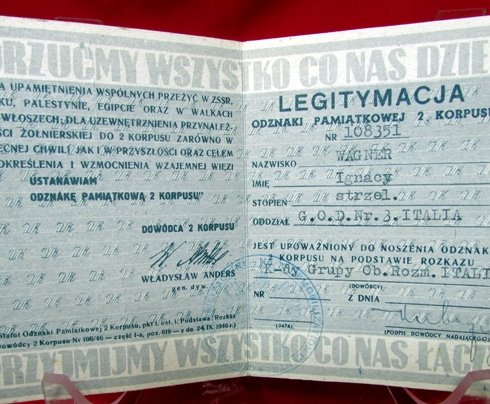 ORZUĆMY WSZYSTKO CO NAS DZIE
A UPAMIĘTNIENIA WSPÓLNYCH PRZEŻYĆ W ZSSR,
KU, PALESTYNIE, EGIPCIE ORAZ W WALKACH
WŁOSZECH; DLA UZEWNĘTRZNIENIA PRZYNALEŻ-
ŚCI ŻOŁNIERSKIEJ DO 2 KORPUSU ZARÓWNO W
ĘCNEJ CHWILI JAK I W PRZYSZŁOŚCI ORAZ CELEM
OKREŚLENIA I WZMOCNIENIA WZAJEMNEJ WIĘZI
USTANAWIAM
ODZNAKĘ PAMIĄTKOWĄ 2 KORPUSU"
DOWÓDCA 2 KORPUSU
WŁADYSŁAW ANDERS
gen. dyw.
Statut Odznaki Pamiątkowej 2 Korpusu, pkt 1, ust. 1. Podstawa: Rozkaz
Dowódcy 2 Korpusu Nr 106/46 — część I-a, poz. 619 — z dn. 24.IX. 1946 r.)
LEGITYMACJA
ODZNAKI PAMIĄTKOWEJ 2 KORPUSU
NR 168351
NAZWISKO WAGNER
IMIĘ Ignacy
STOPIEŃ strzel.
ODDZIAŁ G.O.D.Nr.3.ITALIA
JEST UPOWAŻNIONY DO NOSZENIA ODZNAK
2 KORPUSU NA PODSTAWIE ROZKAZU
Grupy Ob.Rozm.ITALI
(DOWÓDCY)
NR Z DNIA
(DATA) (PODPIS DOWÓDCY NADAJĄCEGO)
PRZYJMIJMY WSZYSTKO CO NAS ŁĄC